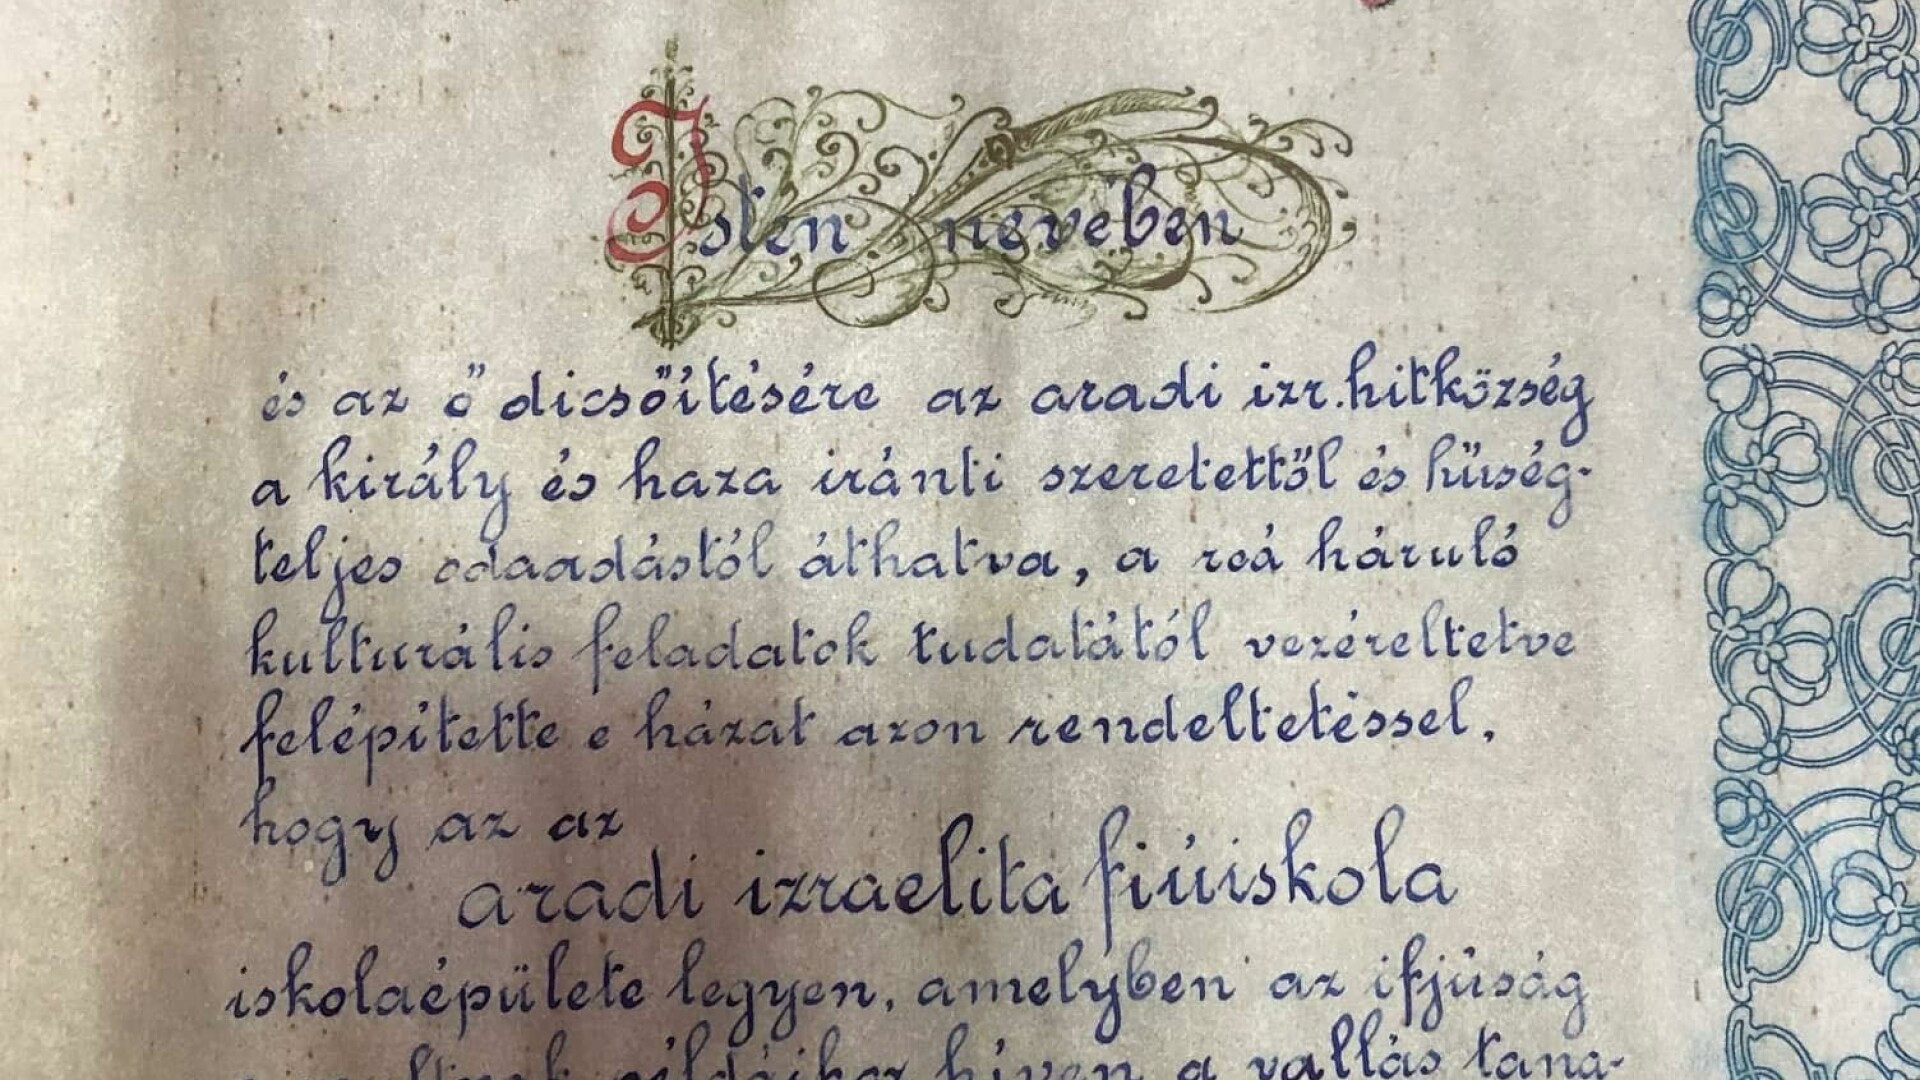 Isten nevében
és az ő dicsőítésére az aradi izr. hitközség
a király és haza iránti szeretettől és hűség-
teljes odaadástól áthatva, a reá háruló
kulturális feladatok tudatától vezéreltetve
felépítette e házat azon rendeltetéssel,
hogy az az
aradi izraelita fiúiskola
iskolaépülete legyen, amelyben az ifjúság
példáihoz híven a vallás tana-